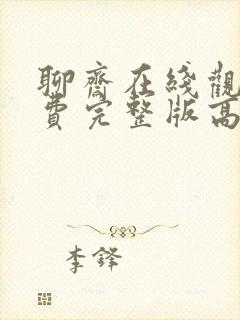 聊齋在线觀
費完整版高
李鋒